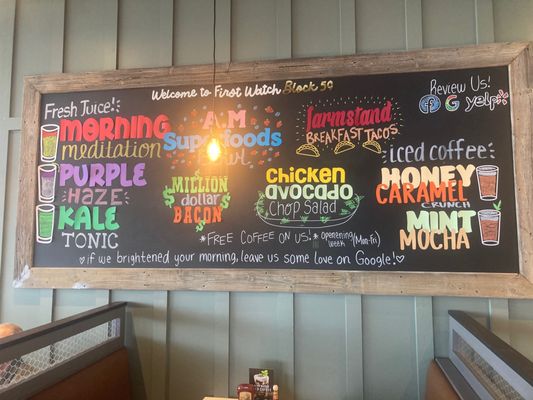 Welcome to First Watch Block 59
Review Us!
G yelp
Fresh Juice!
MORNING
meditation
PURPLE
HAZE
KALE
TONIC
A.M
Superfoods
Bowl
MILLION
dollar
BACON
Chicken
avocado
CHOP SALAD
farmstand
BREAKFAST TACOS
iced coffee
HONEY
CARAMEL
CRUNCH
MINT
MOCHA
*FREE COFFEE ON US!* Opening week (Mon-Fri)
if we brightened your morning, leave us some love on Google!